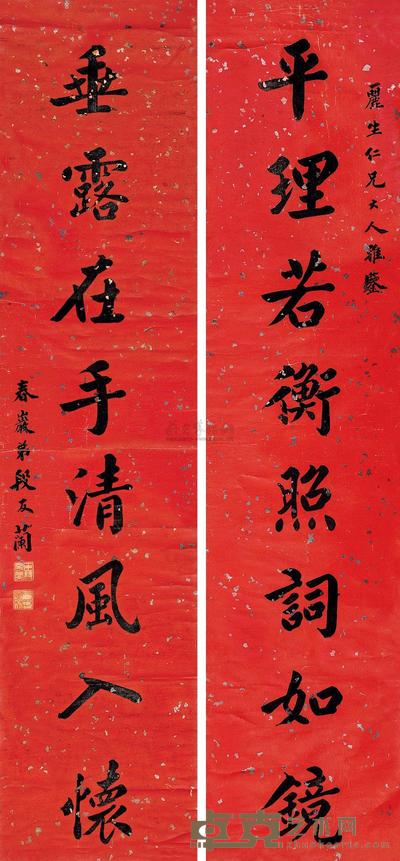 麗生仁兄大人雅鑒
平理若衡照詞如鏡
垂露在手清風入懷
春巖弟段友蘭